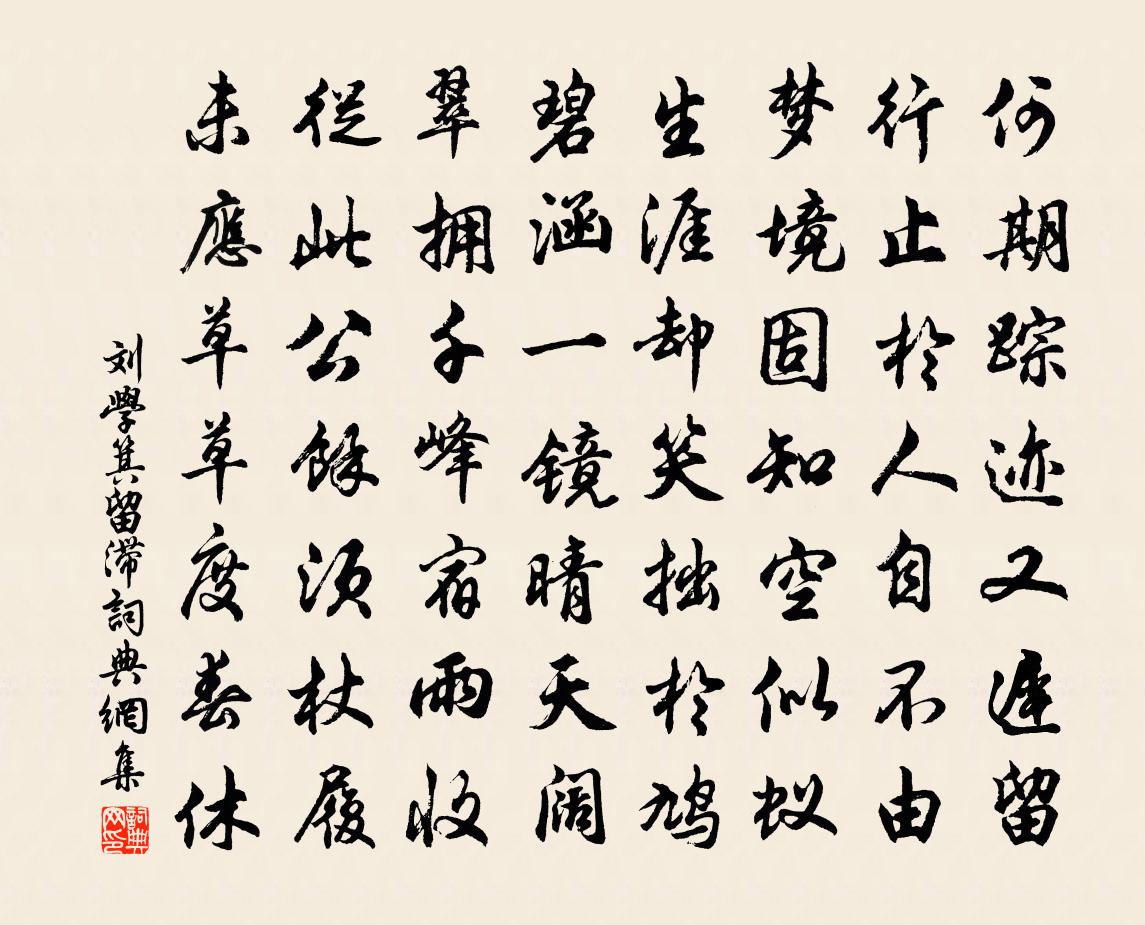 何期踪迹又遲留
行止於人自不由
梦境固知空似蚁
生涯却笑拙於鸠
碧涵一镜晴天阔
翠拥千峰宿雨收
從此公餘須杖履
未應草草度春休
刘學箕留滞詞典網集
詞典网印